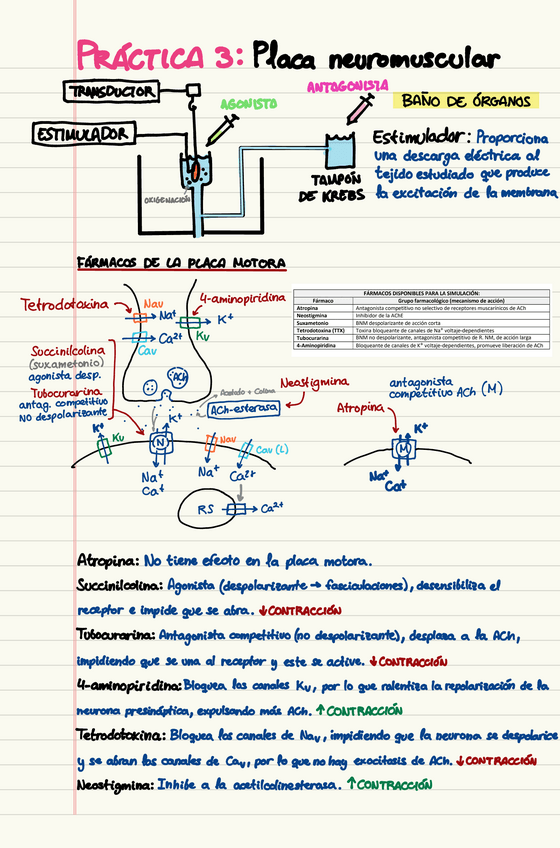 PRÁCTICA 3: Placa neuromuscular
TRANSDUCTOR
AGONISTA
ANTAGONISTA
BAÑO DE ÓRGANOS
ESTIMULADOR
OXIGENACIÓN
TAMPÓN
DE KREBS
Estimulador: Proporciona
una descarga eléctrica al
tejido estudiado que produce
la excitación de la membrana
FÁRMACOS DE LA PLACA MOTORA
Tetrodotoxina
Nav
Na+
4-aminopiridina
K+
Kv
Ca2+
Cav
FÁRMACOS DISPONIBLES PARA LA SIMULACIÓN:
Fármaco Grupo farmacológico (mecanismo de acción)
Atropina Antagonista competitivo no selectivo de receptores muscarínicos de ACh
Neostigmina Inhibidor de la AChE
Suxametonio BNM despolarizante de acción corta
Tetrodotoxina (TTX) Toxina bloqueante de canales de Na+ voltaje-dependientes
Tubocurarina BNM no despolarizante, antagonista competitivo de R. NM, de acción larga
4-Aminopiridina Bloqueante de canales de K+ voltaje-dependientes, promueve liberación de ACh
Succinilcolina
(suxametonio)
agonista desp.
Tubocurarina
antag. competitivo
NO despolarizante
ACh
Acetato + Colina
ACh-esterasa
Neostigmina
antagonista
competitivo ACh (M)
Atropina
K+
Kv
K+
N
Nav
Cav (L)
Na+
Ca+
Na+
Ca2+
K+
M
Na+
Ca+
RS
Ca2+
Atropina: No tiene efecto en la placa motora.
Succinilcolina: Agonista (despolarizante → fasciculaciones), desensibiliza el
receptor e impide que se abra. ↓CONTRACCIÓN
Tubocurarina: Antagonista competitivo (no despolarizante), desplaza a la ACh,
impidiendo que se una al receptor y este se active. ↓CONTRACCIÓN
4-aminopiridina: Bloquea los canales Kv, por lo que ralentiza la repolarización de la
neurona presináptica, expulsando más ACh. ↑CONTRACCIÓN
Tetrodotoxina: Bloquea los canales de Nav, impidiendo que la neurona se despolarice
y se abran los canales de Cav, por lo que no hay exocitosis de ACh. ↓CONTRACCIÓN
Neostigmina: Inhibe a la acetilcolinesterasa. ↑CONTRACCIÓN